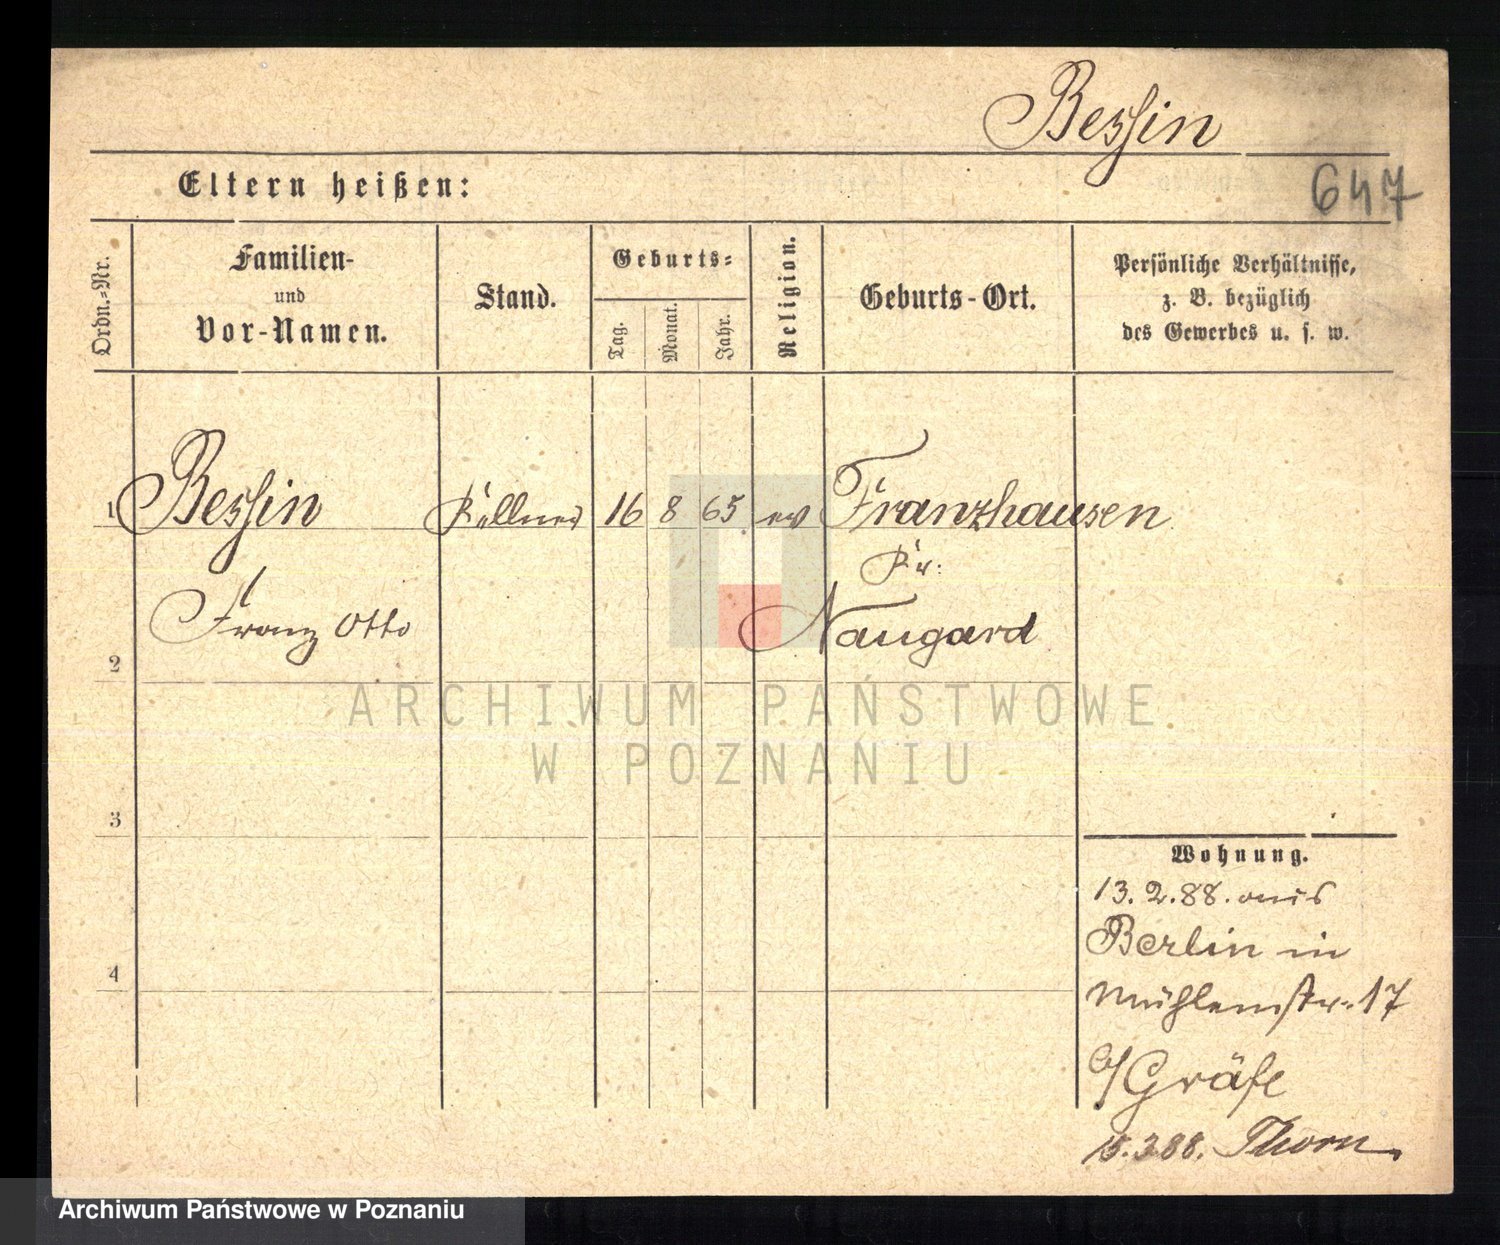 Bessin
647
Eltern heißen:
Ordn.-Nr.
Familien-
und
Vor-Namen.
Stand.
Geburts-
Tag.
Monat.
Jahr.
Religion.
Geburts-Ort.
Persönliche Verhältnisse,
z. B. bezüglich
des Gewerbes u. s. w.
1 Bessin Kellner 16 8 65 ev Franzhausen
Kr.
Franz Otto Naugard
2
ARCHIWUM PAŃSTWOWE
W POZNANIU
3
Wohnung.
13.2.88. aus
Berlin in
4
Mühlenstr. 17
b/Gräfe
15.3.88. Thorn
Archiwum Państwowe w Poznaniu